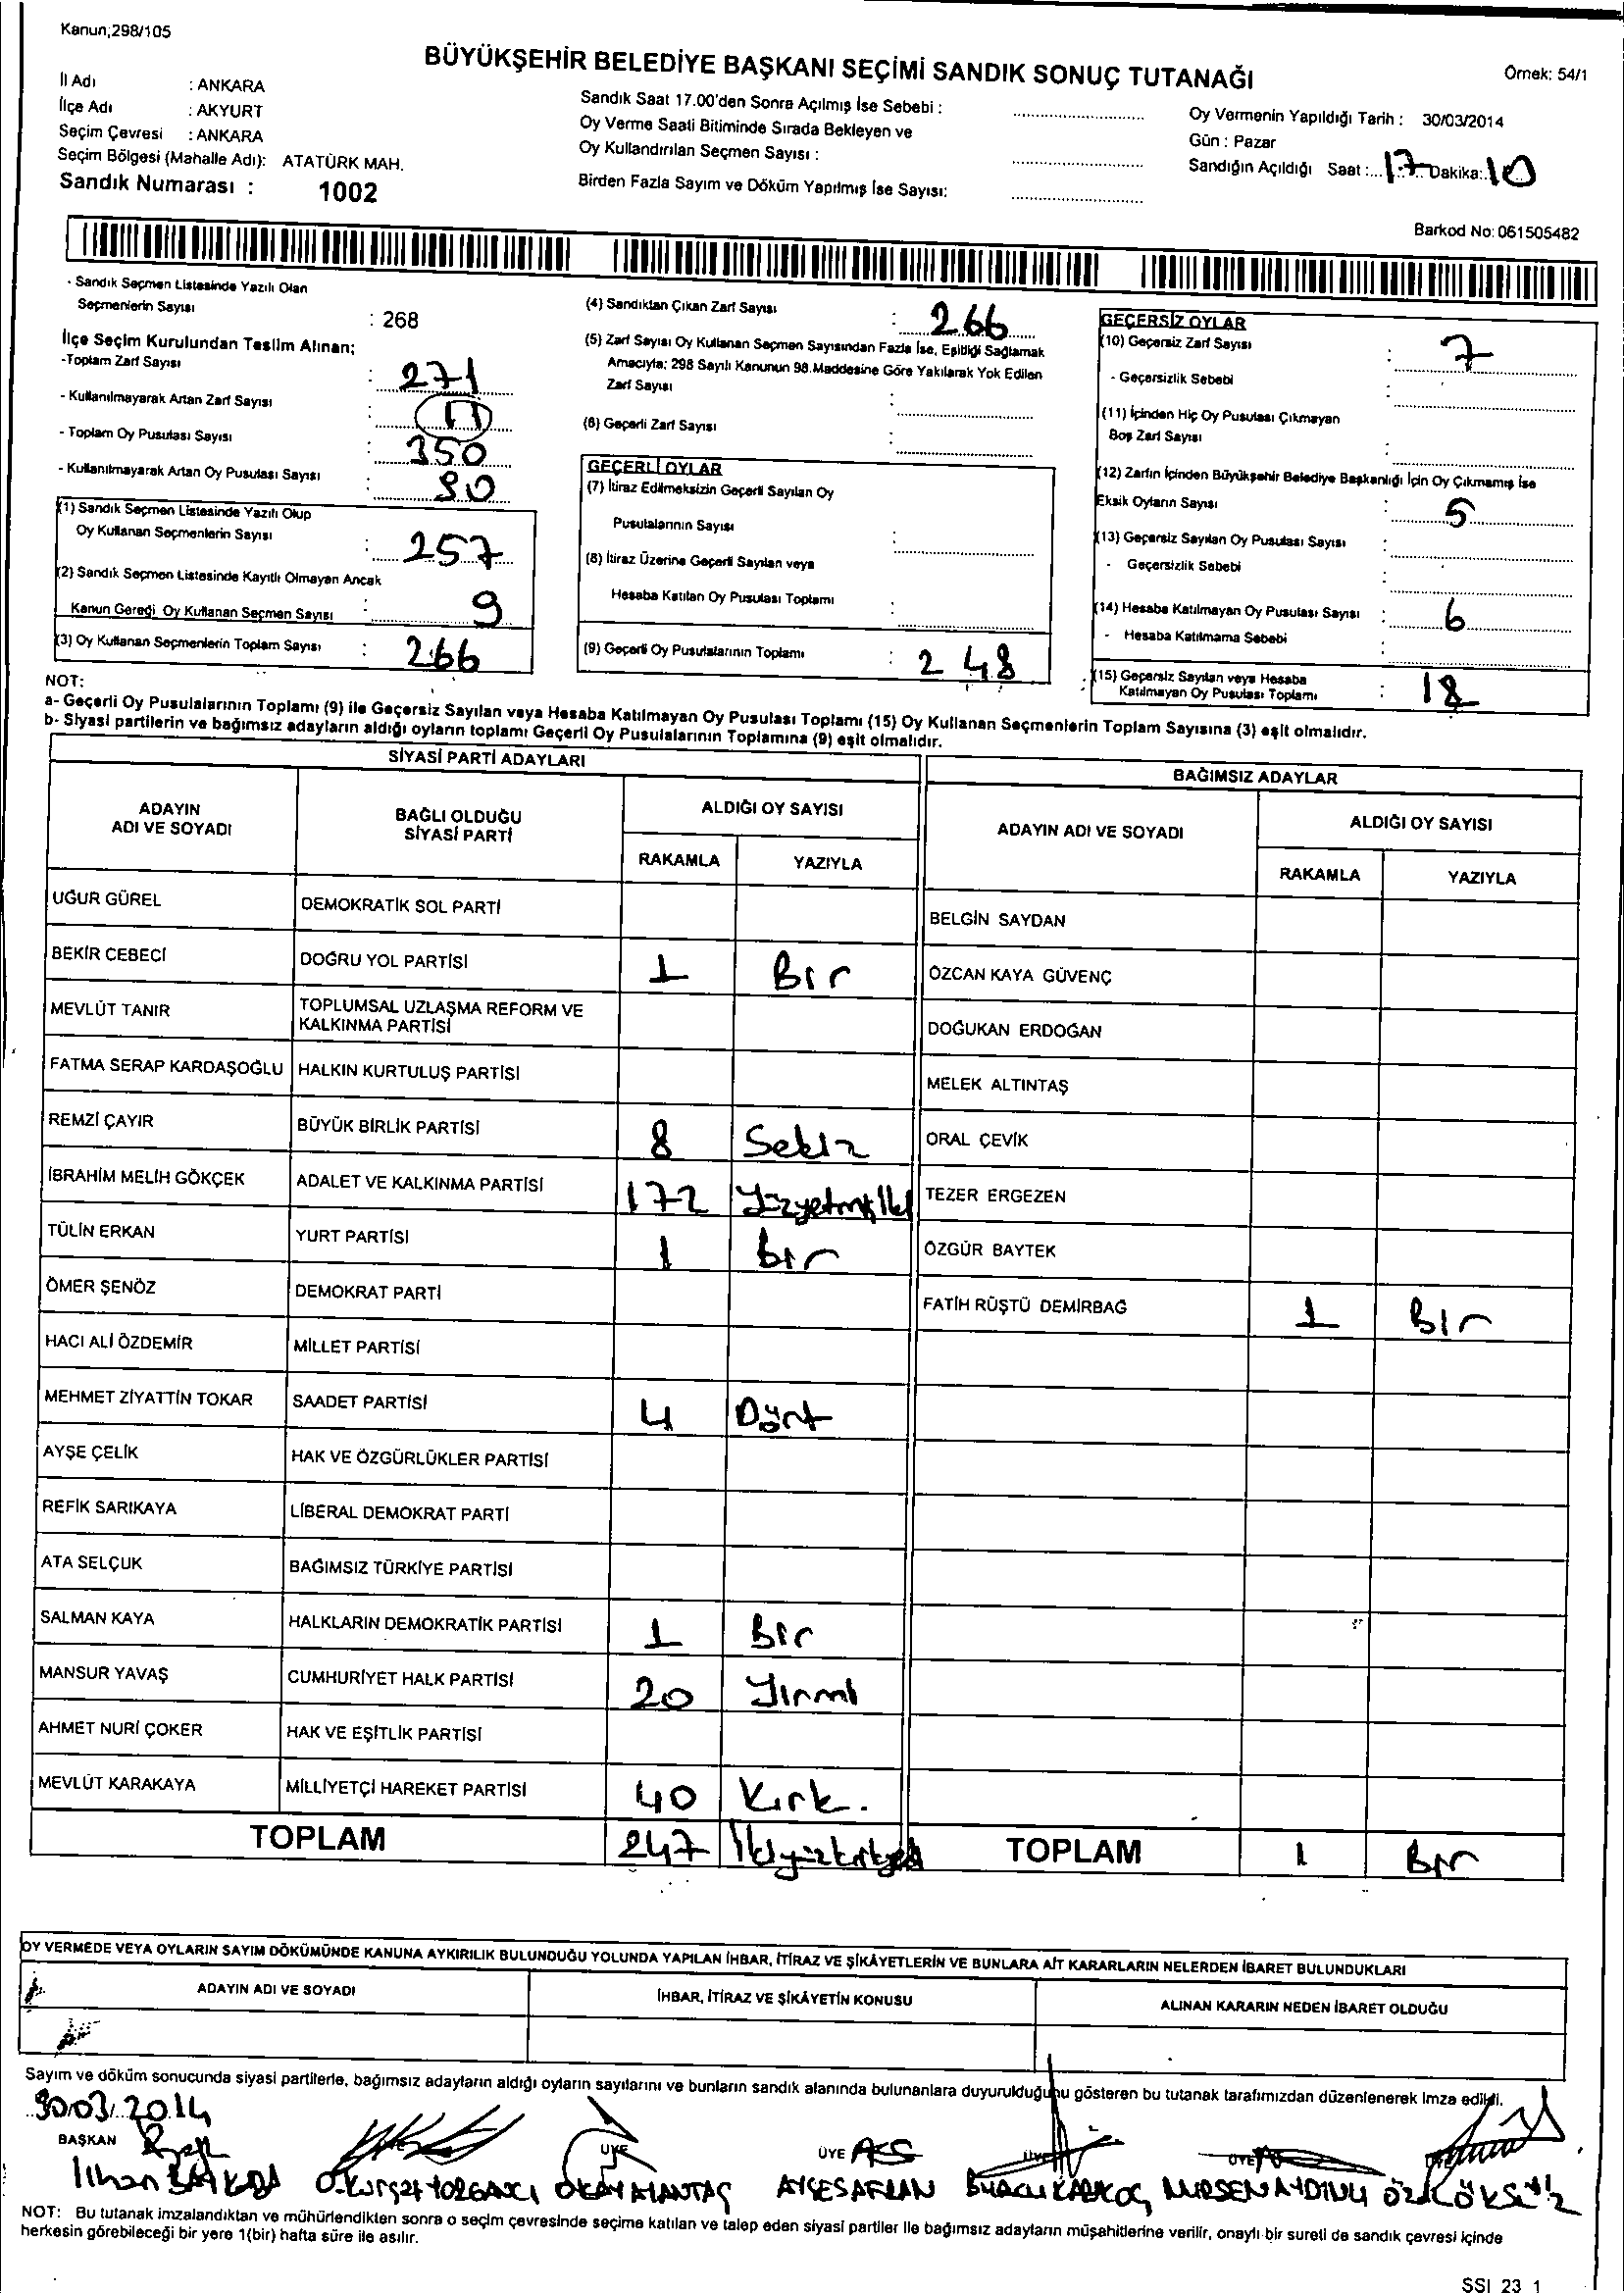 Kanun;298/105
BÜYÜKŞEHİR BELEDİYE BAŞKANI SEÇİMİ SANDIK SONUÇ TUTANAĞI
Örnek: 54/1
İl Adı : ANKARA
İlçe Adı : AKYURT
Seçim Çevresi : ANKARA
Seçim Bölgesi (Mahalle Adı): ATATÜRK MAH.
Sandık Numarası : 1002
Sandık Saat 17.00'den Sonra Açılmış İse Sebebi :
Oy Verme Saati Bitiminde Sırada Bekleyen ve
Oy Kullandırılan Seçmen Sayısı :
Birden Fazla Sayım ve Döküm Yapılmış İse Sayısı:
Oy Vermenin Yapıldığı Tarih : 30/03/2014
Gün : Pazar
Sandığın Açıldığı Saat :... 17 Dakika: 10
Barkod No: 061505482
- Sandık Seçmen Listesinde Yazılı Olan
Seçmenlerin Sayısı : 268
İlçe Seçim Kurulundan Teslim Alınan;
-Toplam Zarf Sayısı : 271
- Kullanılmayarak Artan Zarf Sayısı : 11
- Toplam Oy Pusulası Sayısı : 350
- Kullanılmayarak Artan Oy Pusulası Sayısı : 90
(1) Sandık Seçmen Listesinde Yazılı Olup
Oy Kullanan Seçmenlerin Sayısı : 257
(2) Sandık Seçmen Listesinde Kayıtlı Olmayan Ancak
Kanun Gereği Oy Kullanan Seçmen Sayısı : 9
(3) Oy Kullanan Seçmenlerin Toplam Sayısı : 266
(4) Sandıktan Çıkan Zarf Sayısı : 266
(5) Zarf Sayısı Oy Kullanan Seçmen Sayısından Fazla İse, Eşitliği Sağlamak
Amacıyla: 298 Sayılı Kanunun 98.Maddesine Göre Yakılarak Yok Edilen
Zarf Sayısı :
(6) Geçerli Zarf Sayısı :
GEÇERLİ OYLAR
(7) İtiraz Edilmeksizin Geçerli Sayılan Oy
Pusulalarının Sayısı :
(8) İtiraz Üzerine Geçerli Sayılan veya
Hesaba Katılan Oy Pusulası Toplamı :
(9) Geçerli Oy Pusulalarının Toplamı : 248
GEÇERSİZ OYLAR
(10) Geçersiz Zarf Sayısı : 7
- Geçersizlik Sebebi :
(11) İçinden Hiç Oy Pusulası Çıkmayan
Boş Zarf Sayısı :
(12) Zarfın İçinden Büyükşehir Belediye Başkanlığı İçin Oy Çıkmamış İse
Eksik Oyların Sayısı : 5
(13) Geçersiz Sayılan Oy Pusulası Sayısı :
- Geçersizlik Sebebi :
(14) Hesaba Katılmayan Oy Pusulası Sayısı : 6
- Hesaba Katılmama Sebebi :
(15) Geçersiz Sayılan veya Hesaba
Katılmayan Oy Pusulası Toplamı : 18
NOT:
a- Geçerli Oy Pusulalarının Toplamı (9) ile Geçersiz Sayılan veya Hesaba Katılmayan Oy Pusulası Toplamı (15) Oy Kullanan Seçmenlerin Toplam Sayısına (3) eşit olmalıdır.
b- Siyasi partilerin ve bağımsız adayların aldığı oyların toplamı Geçerli Oy Pusulalarının Toplamına (9) eşit olmalıdır.
SİYASİ PARTİ ADAYLARI
ADAYIN ADI VE SOYADI BAĞLI OLDUĞU SİYASİ PARTİ ALDIĞI OY SAYISI
RAKAMLA YAZIYLA
UĞUR GÜREL DEMOKRATİK SOL PARTİ
BEKİR CEBECİ DOĞRU YOL PARTİSİ 1 Bir
MEVLÜT TANIR TOPLUMSAL UZLAŞMA REFORM VE
KALKINMA PARTİSİ
FATMA SERAP KARDAŞOĞLU HALKIN KURTULUŞ PARTİSİ
REMZİ ÇAYIR BÜYÜK BİRLİK PARTİSİ 8 Sekiz
İBRAHİM MELİH GÖKÇEK ADALET VE KALKINMA PARTİSİ 172 Yüzyetmişiki
TÜLİN ERKAN YURT PARTİSİ 1 bir
ÖMER ŞENÖZ DEMOKRAT PARTİ
HACI ALİ ÖZDEMİR MİLLET PARTİSİ
MEHMET ZİYATTİN TOKAR SAADET PARTİSİ 4 Dört
AYŞE ÇELİK HAK VE ÖZGÜRLÜKLER PARTİSİ
REFİK SARIKAYA LİBERAL DEMOKRAT PARTİ
ATA SELÇUK BAĞIMSIZ TÜRKİYE PARTİSİ
SALMAN KAYA HALKLARIN DEMOKRATİK PARTİSİ 1 Bir
MANSUR YAVAŞ CUMHURİYET HALK PARTİSİ 20 Yirmi
AHMET NURİ ÇOKER HAK VE EŞİTLİK PARTİSİ
MEVLÜT KARAKAYA MİLLİYETÇİ HAREKET PARTİSİ 40 Kırk.
TOPLAM 247 İkiyüzkırkyedi
BAĞIMSIZ ADAYLAR
ADAYIN ADI VE SOYADI ALDIĞI OY SAYISI
RAKAMLA YAZIYLA
BELGİN SAYDAN
ÖZCAN KAYA GÜVENÇ
DOĞUKAN ERDOĞAN
MELEK ALTINTAŞ
ORAL ÇEVİK
TEZER ERGEZEN
ÖZGÜR BAYTEK
FATİH RÜŞTÜ DEMİRBAĞ 1 Bir
TOPLAM 1 Bir
OY VERMEDE VEYA OYLARIN SAYIM DÖKÜMÜNDE KANUNA AYKIRILIK BULUNDUĞU YOLUNDA YAPILAN İHBAR, İTİRAZ VE ŞİKÂYETLERİN VE BUNLARA AİT KARARLARIN NELERDEN İBARET BULUNDUKLARI
ADAYIN ADI VE SOYADI İHBAR, İTİRAZ VE ŞİKÂYETİN KONUSU ALINAN KARARIN NEDEN İBARET OLDUĞU
Sayım ve döküm sonucunda siyasi partilerle, bağımsız adayların aldığı oyların sayılarını ve bunların sandık alanında bulunanlara duyurulduğunu gösteren bu tutanak tarafımızdan düzenlenerek imza edildi.
30.03.2014
BAŞKAN ÜYE ÜYE ÜYE ÜYE
İlhan AYŞE SAFLAN NURSEN AYDINLI
NOT: Bu tutanak imzalandıktan ve mühürlendikten sonra o seçim çevresinde seçime katılan ve talep eden siyasi partiler ile bağımsız adayların müşahitlerine verilir, onaylı bir sureti de sandık çevresi içinde
herkesin görebileceği bir yere 1(bir) hafta süre ile asılır.
SSI 23 1